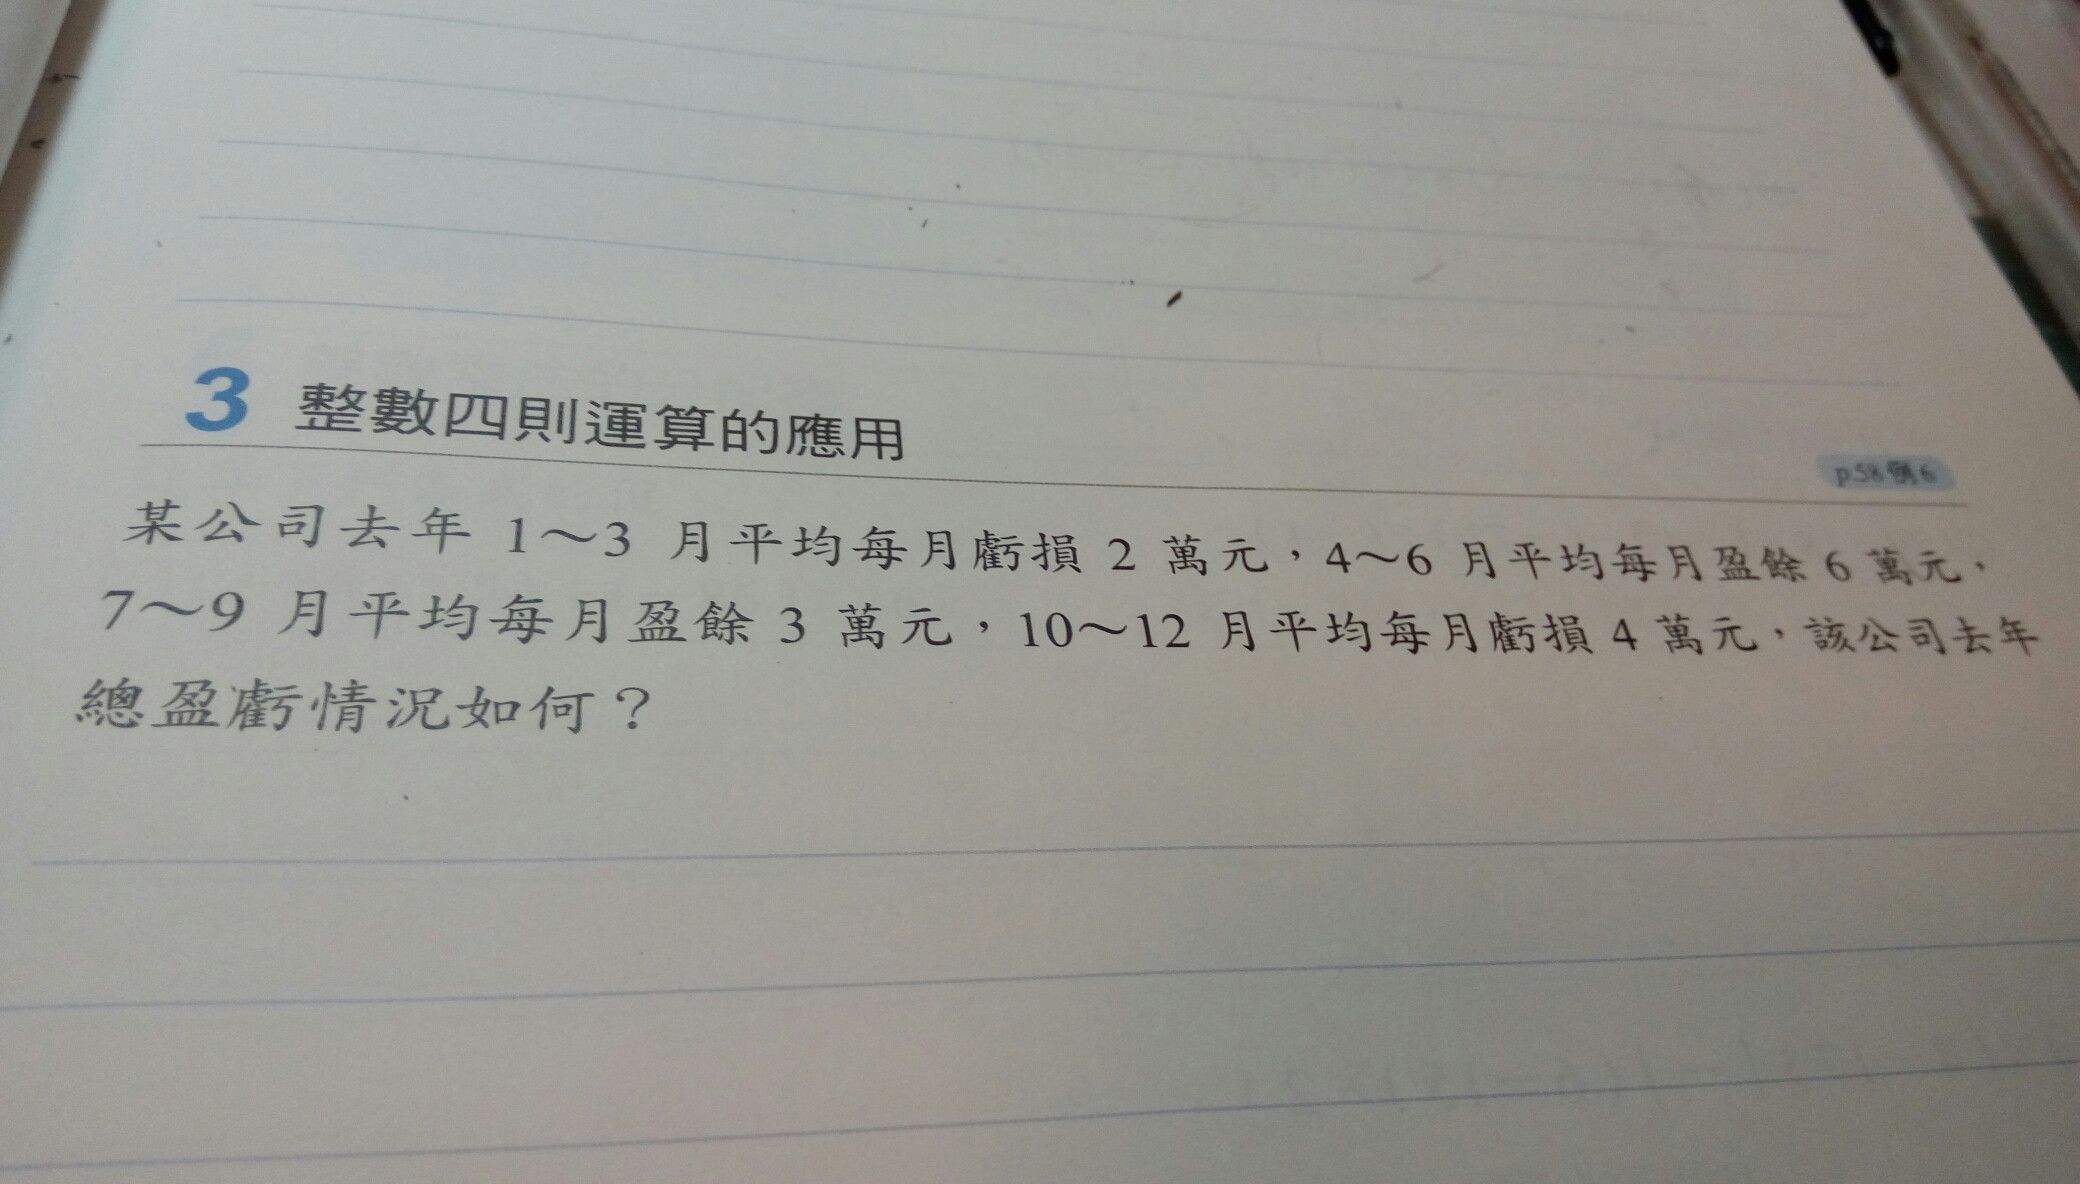 3 整數四則運算的應用
p.58例6
某公司去年 1～3 月平均每月虧損 2 萬元，4～6 月平均每月盈餘 6 萬元，
7～9 月平均每月盈餘 3 萬元，10～12 月平均每月虧損 4 萬元，該公司去年
總盈虧情況如何？